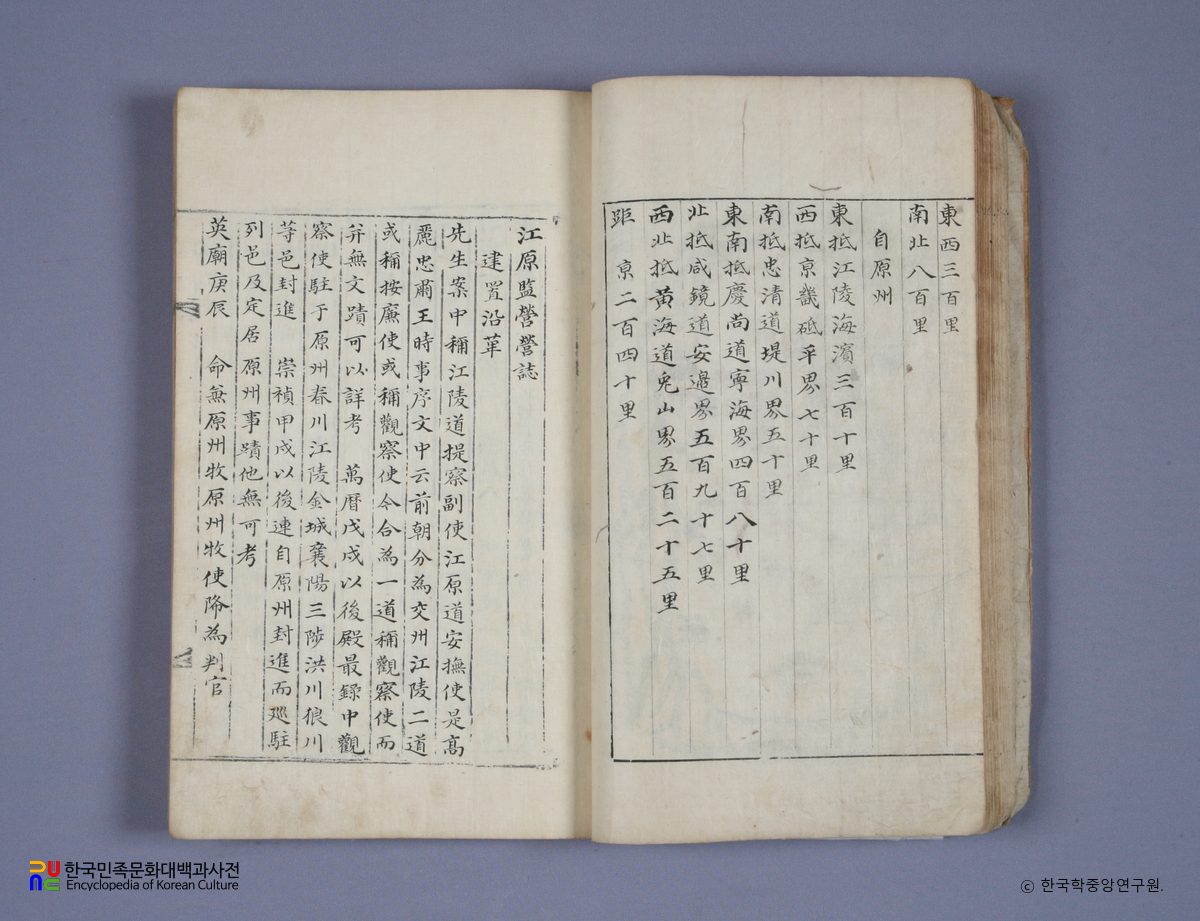 東西三百里
南北八百里
自原州
東抵江陵海濱三百十里
西抵京畿砥平界七十里
南抵忠清道堤川界五十里
東南抵慶尚道寧海界四百八十里
北抵咸鏡道安邉界五百九十七里
西北抵黃海道兎山界五百二十五里
距京二百四十里
江原監營營誌
建置沿革
先生案中稱江陵道提察副使江原道安撫使是髙
麗忠肅王時事序文中云前朝分為交州江陵二道
或稱按廉使或稱觀察使今合為一道稱觀察使而
幷無文蹟可以詳考 萬曆戊戌以後殿最錄中觀
察使駐于原州春川江陵金城襄陽三陟洪川狼川
等邑封進 崇禎甲戌以後連自原州封進而廵駐
列邑及定居原州事蹟他無可考
英廟庚辰 命兼原州牧原州牧使降為判官
한국민족문화대백과사전
Encyclopedia of Korean Culture
ⓒ 한국학중앙연구원.